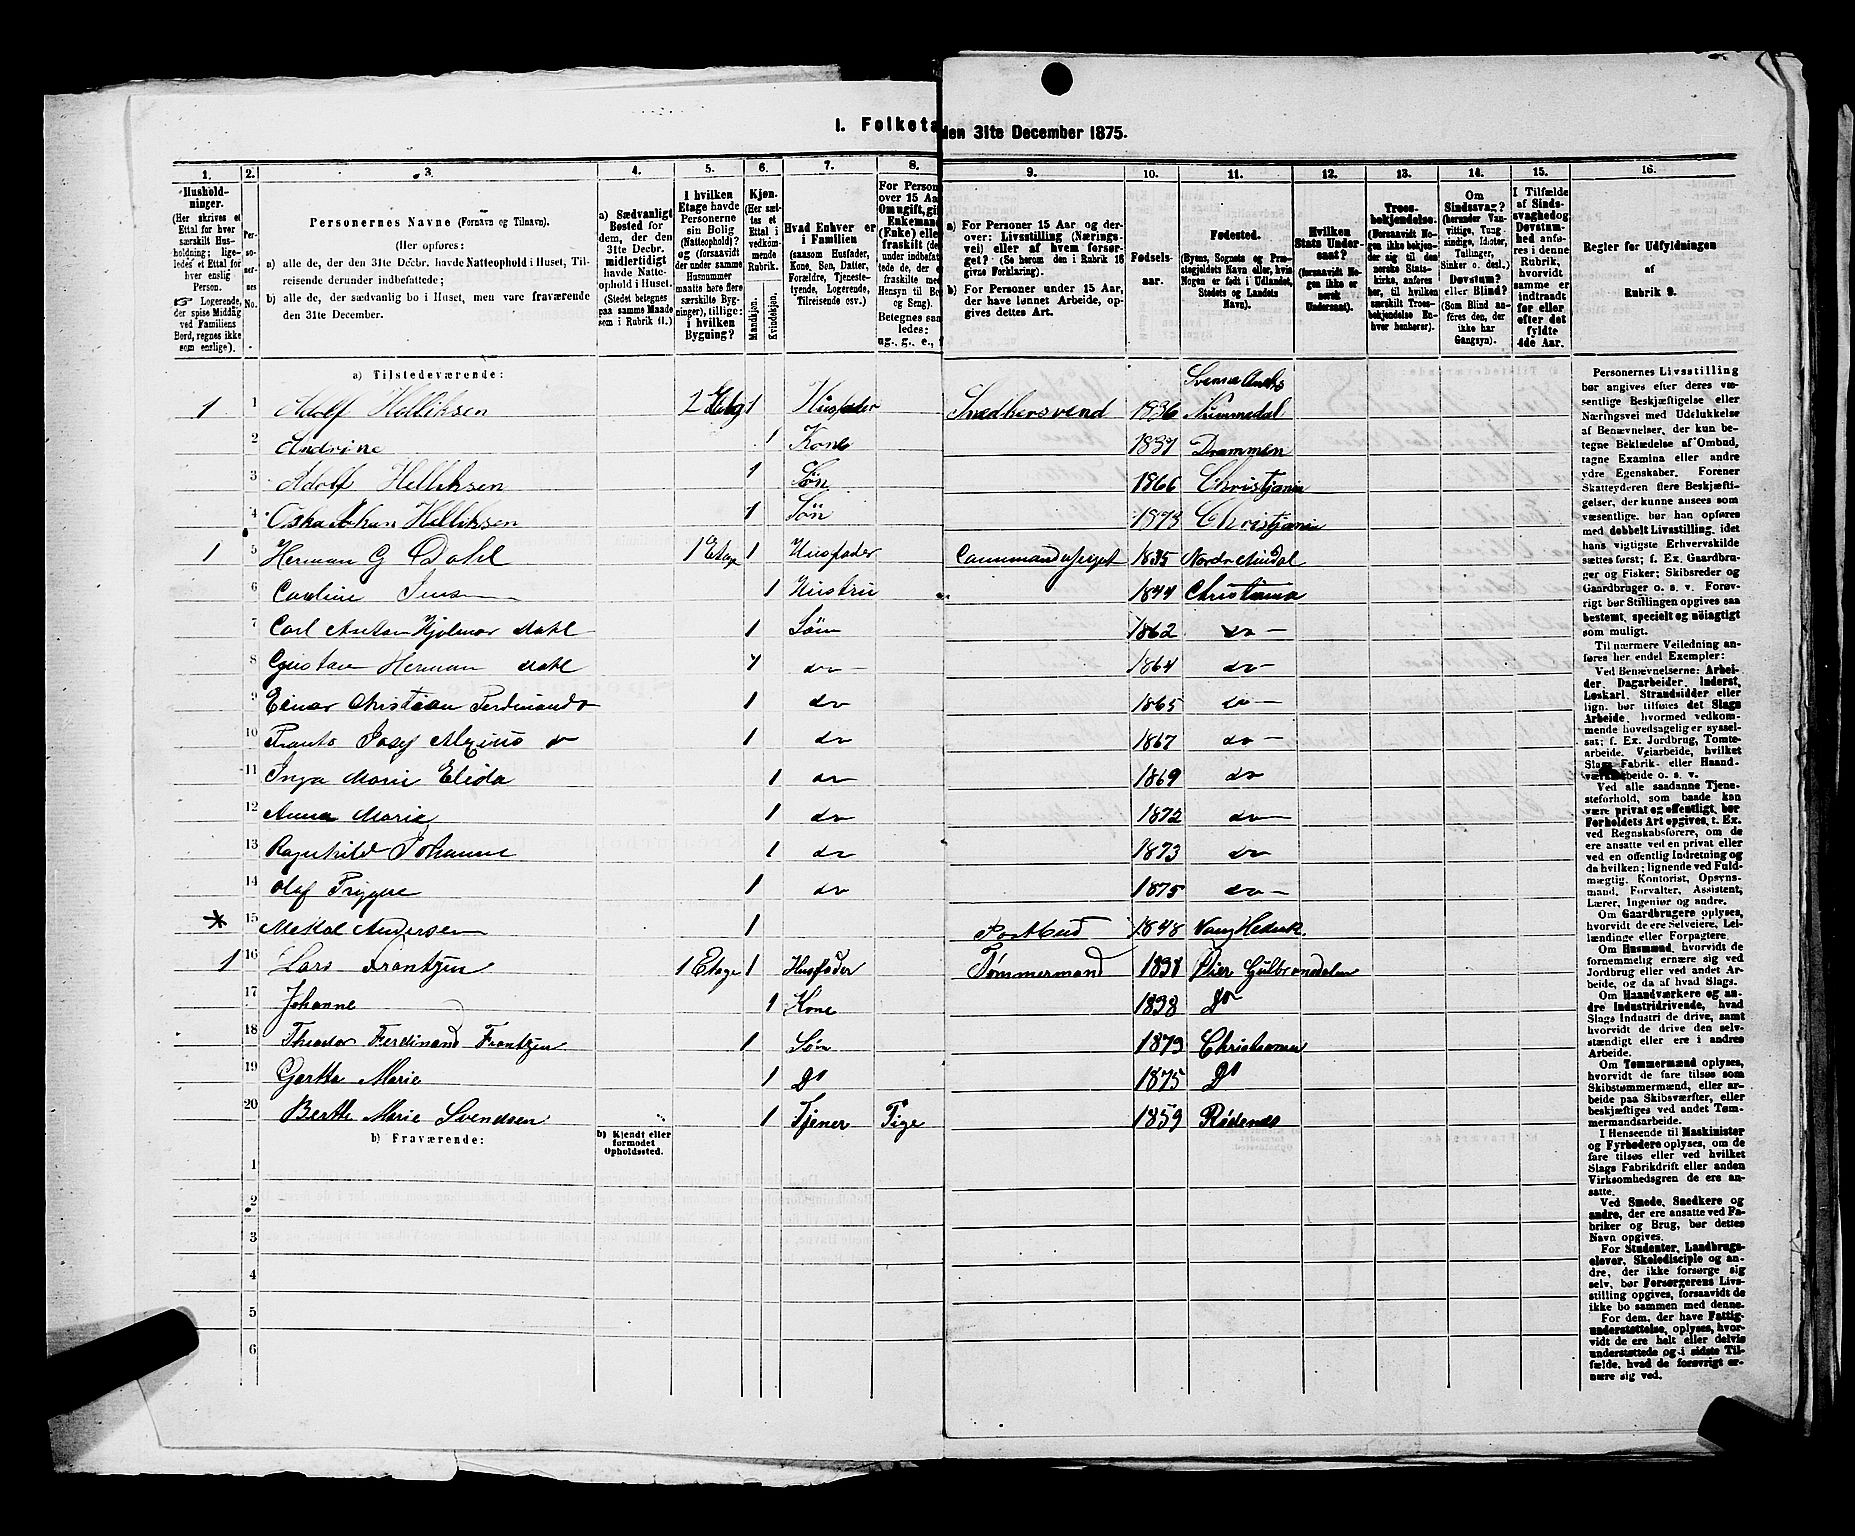 I. Folketæ
den 31te December 1875.
1.
Hushold-
ninger.
(Her skrives et
Ettal for hver
særskilt Hus-
holdning; lige-
ledes et Ettal for
hver enslig
Person.
☞ Logerende,
der spise Middag
ved Familiens
Bord, regnes ikke
som enslige).
2.
Per-
so-
ner-
nes
No.
3.
Personernes Navne (Fornavn og Tilnavn).
(Her opføres:
a) alle de, der den 31te Decbr. havde Natteophold i Huset, Til-
reisende derunder indbefattede;
b) alle de, der sædvanlig bo i Huset, men vare fraværende
den 31te December.
4.
a) Sædvanligt
Bosted for
dem, der den
31te Decbr.
midlertidigt
havde Natte-
ophold i Huset.
(Stedet betegnes
paa samme Maade
som i Rubrik 11.)
5.
I hvilken
Etage havde
Personerne
sin Bolig
(Natteophold)?
og (forsaavidt
der under samme
Husnummer
maatte høre flere
særskilte Byg-
ninger), tillige:
i hvilken
Bygning?
6.
Kjøn.
(Her sæt-
tes et
Ettal i
vedkom-
mende
Rubrik.
Mandkjøn.
Kvindekjøn.
7.
Hvad Enhver er
i Familien
(saasom Husfader,
Kone, Søn, Datter,
Forældre, Tjeneste-
tyende, Logerende,
Tilreisende osv.)
8.
For Person
over 15 Aa
Om ugift, gi
Enkemand
(Enke) elle
fraskilt (de
under indbefat-
tede de, der e
fraskilte me
Hensyn til Bo
og Seng).
Betegnes saa
ledes:
ug., g., e., f
9.
a) For Personer 15 Aar og der-
over: Livsstilling (Nærings-
vei) eller af hvem forsør-
get? (Se herom den i Rubrik 16
givne Forklaring).
b) For Personer under 15 Aar,
der have lønnet Arbeide, op-
gives dettes Art.
10.
Fødsels-
aar.
11.
Fødested.
(Byens, Sognets og Præ-
stegjeldets Navn eller, hvis
Nogen er født i Udlandet,
Stedets og Landets
Navn).
12.
Hvilken
Stats Under-
saat?
(forsaavidt No-
gen ikke er
norsk
Undersaat).
13.
Troes-
bekjendelse.
(Forsaavidt No-
gen ikke bekjen-
der sig til den
norske Stats-
kirke, anføres
her, til hvilken
særskilt Troes-
bekjendelse En-
hver henhører).
14.
Om
Sindssvag?
(herunder Van-
vittige, Tung-
sindige, Idioter,
Tullinger,
Sinker o. desl.)
Døvstum?
eller Blind?
(Som Blind an-
føres den, der
ikke har
Gangsyn).
15.
I Tilfælde
af Sinds-
svaghed og
Døvstum-
hed anfø-
res i denne
Rubrik,
hvorvidt
samme er
indtraadt
før eller
efter det
fyldte
4de Aar.
16.
Regler for Udfyldningen
af
Rubrik 9.
a) Tilstedeværende:
1 1 Adolf Helliksen 2 Etag 1 Husfader Snedkersvend 1836 Nummedal
2 Andrine 1 Kone 1837 Drammen
3 Adolf Helliksen 1 Søn 1866 Christjania
4 Oska Johan Helliksen 1 Søn 1873 Christjania
1 5 Herman G Dahl 1 Etage 1 Husfader 1835
6 Caroline 1 Hustru 1844 Christiania
7 Carl Anton Hjalmar Dahl 1 Søn 1862 do —
8 Gustav Herman Dahl 1 do — 1864 do —
9 Einar Christian Ferdinand 1 do 1865 do —
10 Frants Josef Alexius do 1 do 1867 do —
11 Inga Marie Elida 1 do 1869 do
12 Anna Marie 1 do 1872 do —
13 Ragnhild Johanne 1 do 1873 do
14 Olaf Tryggve 1 do 1875 do —
* 15 Mekal Andersen 1 Postbud 1848 Vang Hedemk.
1 16 Lars Frantzen 1 Etage 1 Husfader Tømmermand 1838 Øier Gulbrandsdalen
17 Johanne 1 Kone 1838 Do
18 Theodor Ferdinand Frantzen 1 Søn 1873 Christiania
19 Gartha Marie 1 Do 1875 Do
20 Berthe Marie Svendsen 1 Tjener Pige 1859 Rødenes
b) Fraværende:
b) Kjendt eller
formodet
Opholdssted.
1
2
3
4
5
6
Personernes Livsstilling
bør angives efter deres væ-
sentlige Beskjæftigelse eller
Næringsvei med Udelukkelse
af Benævnelser, der kun be-
tegne Beklædelse af Ombud,
tagne Examina eller andre
ydre Egenskaber. Forener
Skatteyderen flere Beskjæfti-
gelser, der kunne ansees som
væsentlige, bør han opføres
med dobbelt Livsstilling, idet
hans vigtigste Erhvervskilde
sættes først; f. Ex. Gaardbru-
ger og Fisker; Skibsreder og
Gaardbruger o. s. v. Forøv-
rigt bør Stillingen opgives saa
bestemt, specielt og nøiagtigt
som muligt.
Til nærmere Veiledning an-
føres her endel Exempler:
Ved Benævnelserne: Arbei-
der, Dagarbeider, Inderst,
Løskarl, Strandsidder eller
lign. bør tilføies det Slags
Arbeide, hvormed vedkom-
mende hovedsagelig er syssel-
sat; f. Ex. Jordbrug, Tomte-
arbeide, Veiarbeide, hvilket
Slags Fabrik- eller Haand-
værksarbeide o. s. v.
Ved alle saadanne Tjene-
steforhold, som baade kan
være privat og offentligt, bør
Forholdets Art opgives, t. Ex.
ved Regnskabsførere, om de
ere ansatte ved en privat eller
ved en offentlig Indretning og
da hvilken; lignende ved Fuld-
mægtig, Kontorist, Opsyns-
mand, Forvalter, Assistent,
Lærer, Ingeniør og andre.
Om Gaardbrugere oplyses,
hvorvidt de ere Selveiere, Lei-
lændinge eller Forpagtere.
Om Husmænd, hvorvidt de
fornemmelig ernære sig ved
Jordbrug eller ved andet Ar-
beide, og da af hvad Slags.
Om Haandværkere og an-
dre Industridrivende, hvad
Slags Industri de drive, samt
hvorvidt de drive den selv-
stændigt eller ere i andres
Arbeide.
Om Tømmermænd oplyses,
hvorvidt de fare tilsøs som
Skibstømmermænd, eller ar-
beide paa Skibsværfter, eller
beskjæftiges ved andet Tøm-
mermandsarbeide.
I Henseende til Maskinister
og Fyrbødere oplyses, om de
fare tilsøs eller ved hvilket
Slags Fabrikdrift eller anden
Virksomhedsgren de ere an-
satte.
Ved Smede, Snedkere og
andre, der ere ansatte ved Fa-
briker og Brug, bør dettes
Navn opgives.
For Studenter, Landbrugs-
elever, Skoledisciple og an-
dre, der ikke forsørge sig
selv, bør Forsørgerens Livs-
stilling opgives, forsaavidt de
ikke bo sammen med denne.
For dem, der have Fattig-
understøttelse, oplyses, hvor-
vidt de ere helt eller delvis
understøttede og i sidste Til-
fælde, hvad de forøvrigt er-
nære sig ved.